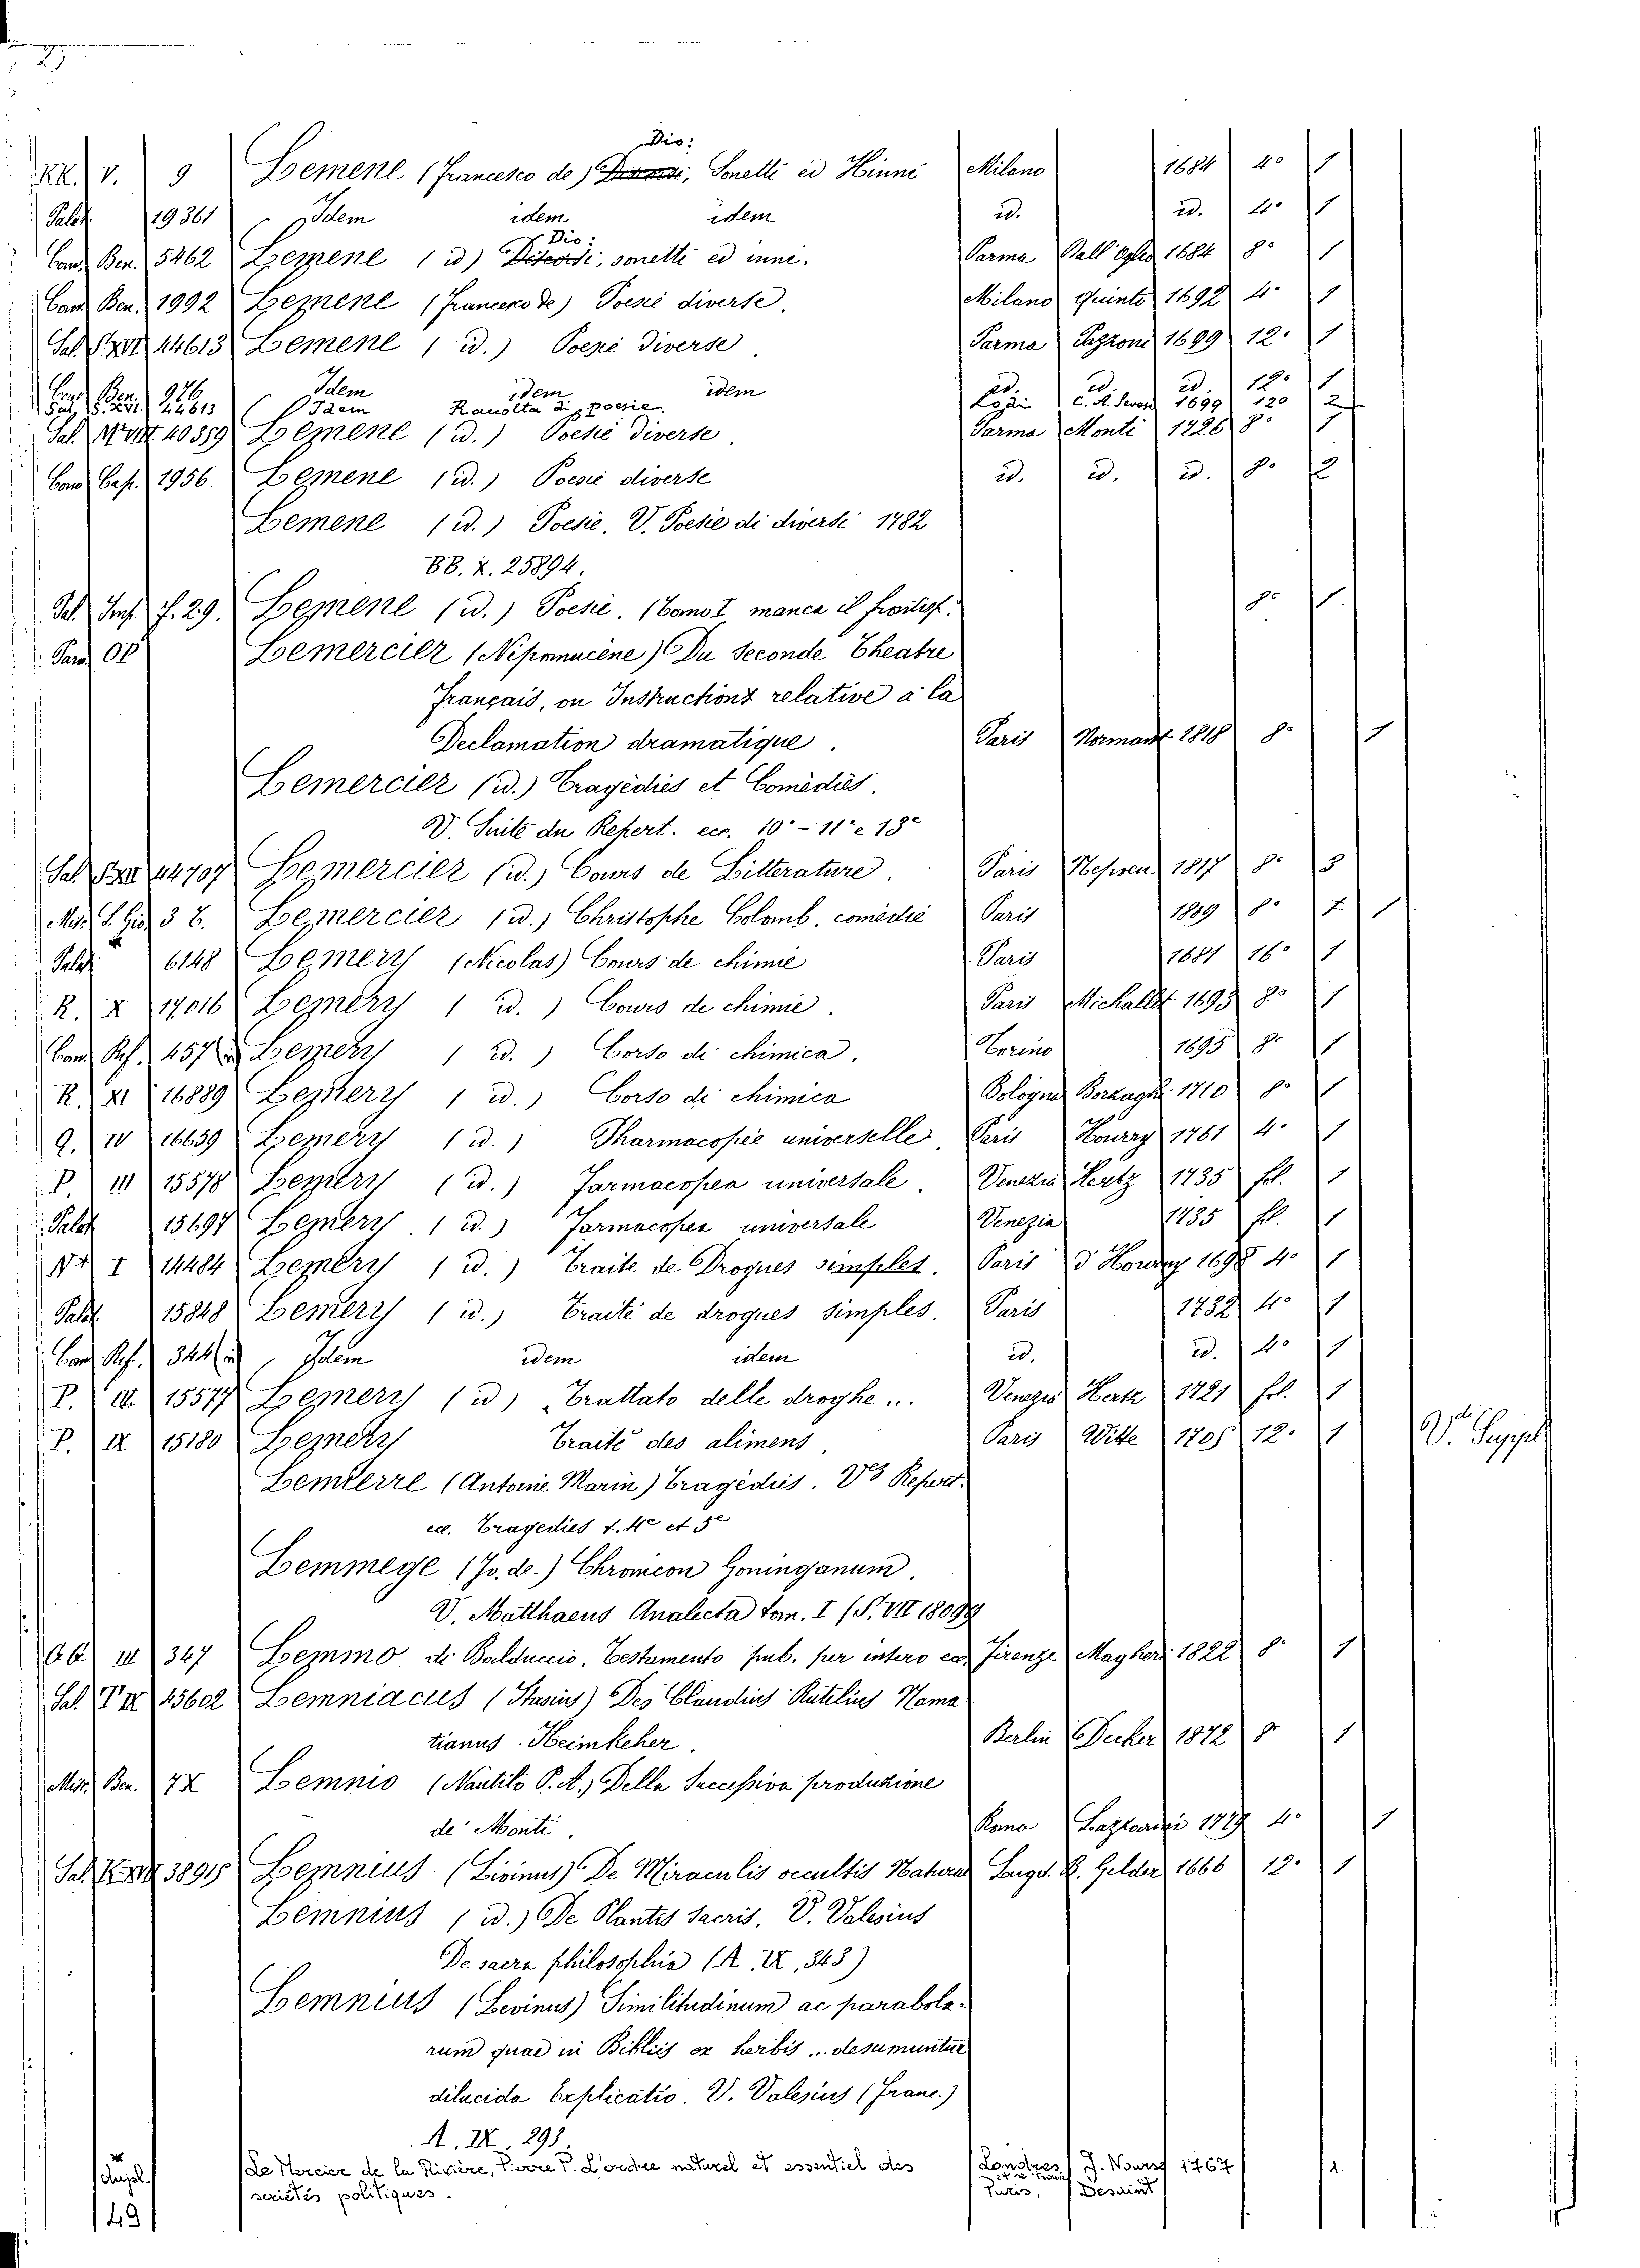 KK. V. 9 Lemene (Francesco de) Dio: Sonetti ed Hinni Milano 1684 4º 1
Palat. 19361 Idem idem idem id. id. 4º 1
Cam. Ben. 5462 Lemene (id) Dio: sonetti ed inni. Parma Dall'Oglio 1684 8º 1
Cam. Ben. 1992 Lemene (Francesco de) Poesie diverse. Milano Quinto 1692 4º 1
Sal. S. XVI 44613 Lemene (id.) Poesie diverse. Parma Pazzoni 1699 12º 1
Cam. Ben. 976 Idem idem idem id. id. id. 12º 1
Sal. S. XVI. 44613 Idem Raccolta di poesie. Lodi C. A. Sevesi 1699 12º 2
Sal. 40359 Lemene (id.) Poesie diverse. Parma Monti 1726 8º 1
Cam. Cap. 1956. Lemene (id.) Poesie diverse id. id. id. 8º 2
Lemene (id.) Poesie. V. Poesie di diversi 1782
BB. X. 25894.
Sal. f. 29. Lemene (id.) Poesie. (Tomo I manca il frontesp. 8º 1
Parm. Lemercier (Népomucène) Du Seconde Theatre
Français, ou Instructions relative à la
Declamation dramatique. Paris Normant 1818 8º 1
Lemercier (id.) Tragédies et Comédies.
V. Suite du Repert. ecc. 10º - 11º e 13º
Sal. 44707 Lemercier (id.) Cours de Litterature. Paris Nepveu 1817 8º 3
Mis. S. Gio. 3 Lemercier (id.) Christophe Colomb, comédie Paris 1809 8º 1
Palat. 6148 Lemery (Nicolas) Cours de chimie Paris 1681 16º 1
R. X 17016 Lemery (id.) Cours de chimie. Paris Michallet 1693 8º 1
Cam. Ref. 457 Lemery (id.) Corso di chimica. Torino 1695 8º 1
R. XI 16889 Lemery (id.) Corso di chimica Bologna 1710 8º 1
Q. IV 16659 Lemery (id.) Pharmacopée universelle. Paris Houry 1761 4º 1
P. III 15578 Lemery (id.) Farmacopea universale. Venezia Hertz 1735 fol. 1
Palat. 15697 Lemery (id.) Farmacopea universale Venezia 1735 fol. 1
I 14484 Lemery (id.) Traite des Drogues simples. Paris d'Houry 1698 4º 1
Palat. 15848 Lemery (id.) Traité de drogues simples. Paris 1732 4º 1
Cam. Ref. 344 Idem idem idem id. id. 4º 1
P. III. 15577 Lemery (id.) Trattato delle droghe... Venezia Hertz 1721 fol. 1
P. IX 15180 Lemery Traité des alimens. Paris Witte 1705 12º 1 V. Suppl.
Lemierre (Antoine Marin) Tragédies. Vº Repert.
ec. Tragedies t. 4º et 5º
Lemmege (Jo. de) Chronicon Groninganum.
V. Matthaeus Analecta tom. I (S. VII 18099
III 347 Lemmo di Balduccio, Testamento pub. per intero ecc. Firenze Magheri 1822 8º 1
Sal. 45602 Lemniacus (Stasius) Des Claudius Rutilius Nama
tianus Heimkeher. Berlin Decker 1872 8º 1
Mis. Ben. 7 X Lemnio (Nautilo P. A.) Della Successiva produzione
de' Monti. Roma Lazzarini 1779 4º 1
Sal. 3891 Lemnius (Livinus) De Miraculis occultis Naturae Lugd. B. Gelder 1666 12º 1
Lemnius (id.) De Plantis sacris. V. Valesius
De sacra philosophia (A. IX, 343)
Lemnius (Levinus) Similitudinum ac parabola-
rum quae in Bibliis ex herbis .. desumuntur
dilucida Explicatio. V. Valesius (Franc.)
A. IX. 293.
Suppl. Le Mercier de la Rivière, Pierre P. L'ordre naturel et essentiel des Londres, J. Nourse 1767 1.
sociétés politiques. Paris, Desaint
49